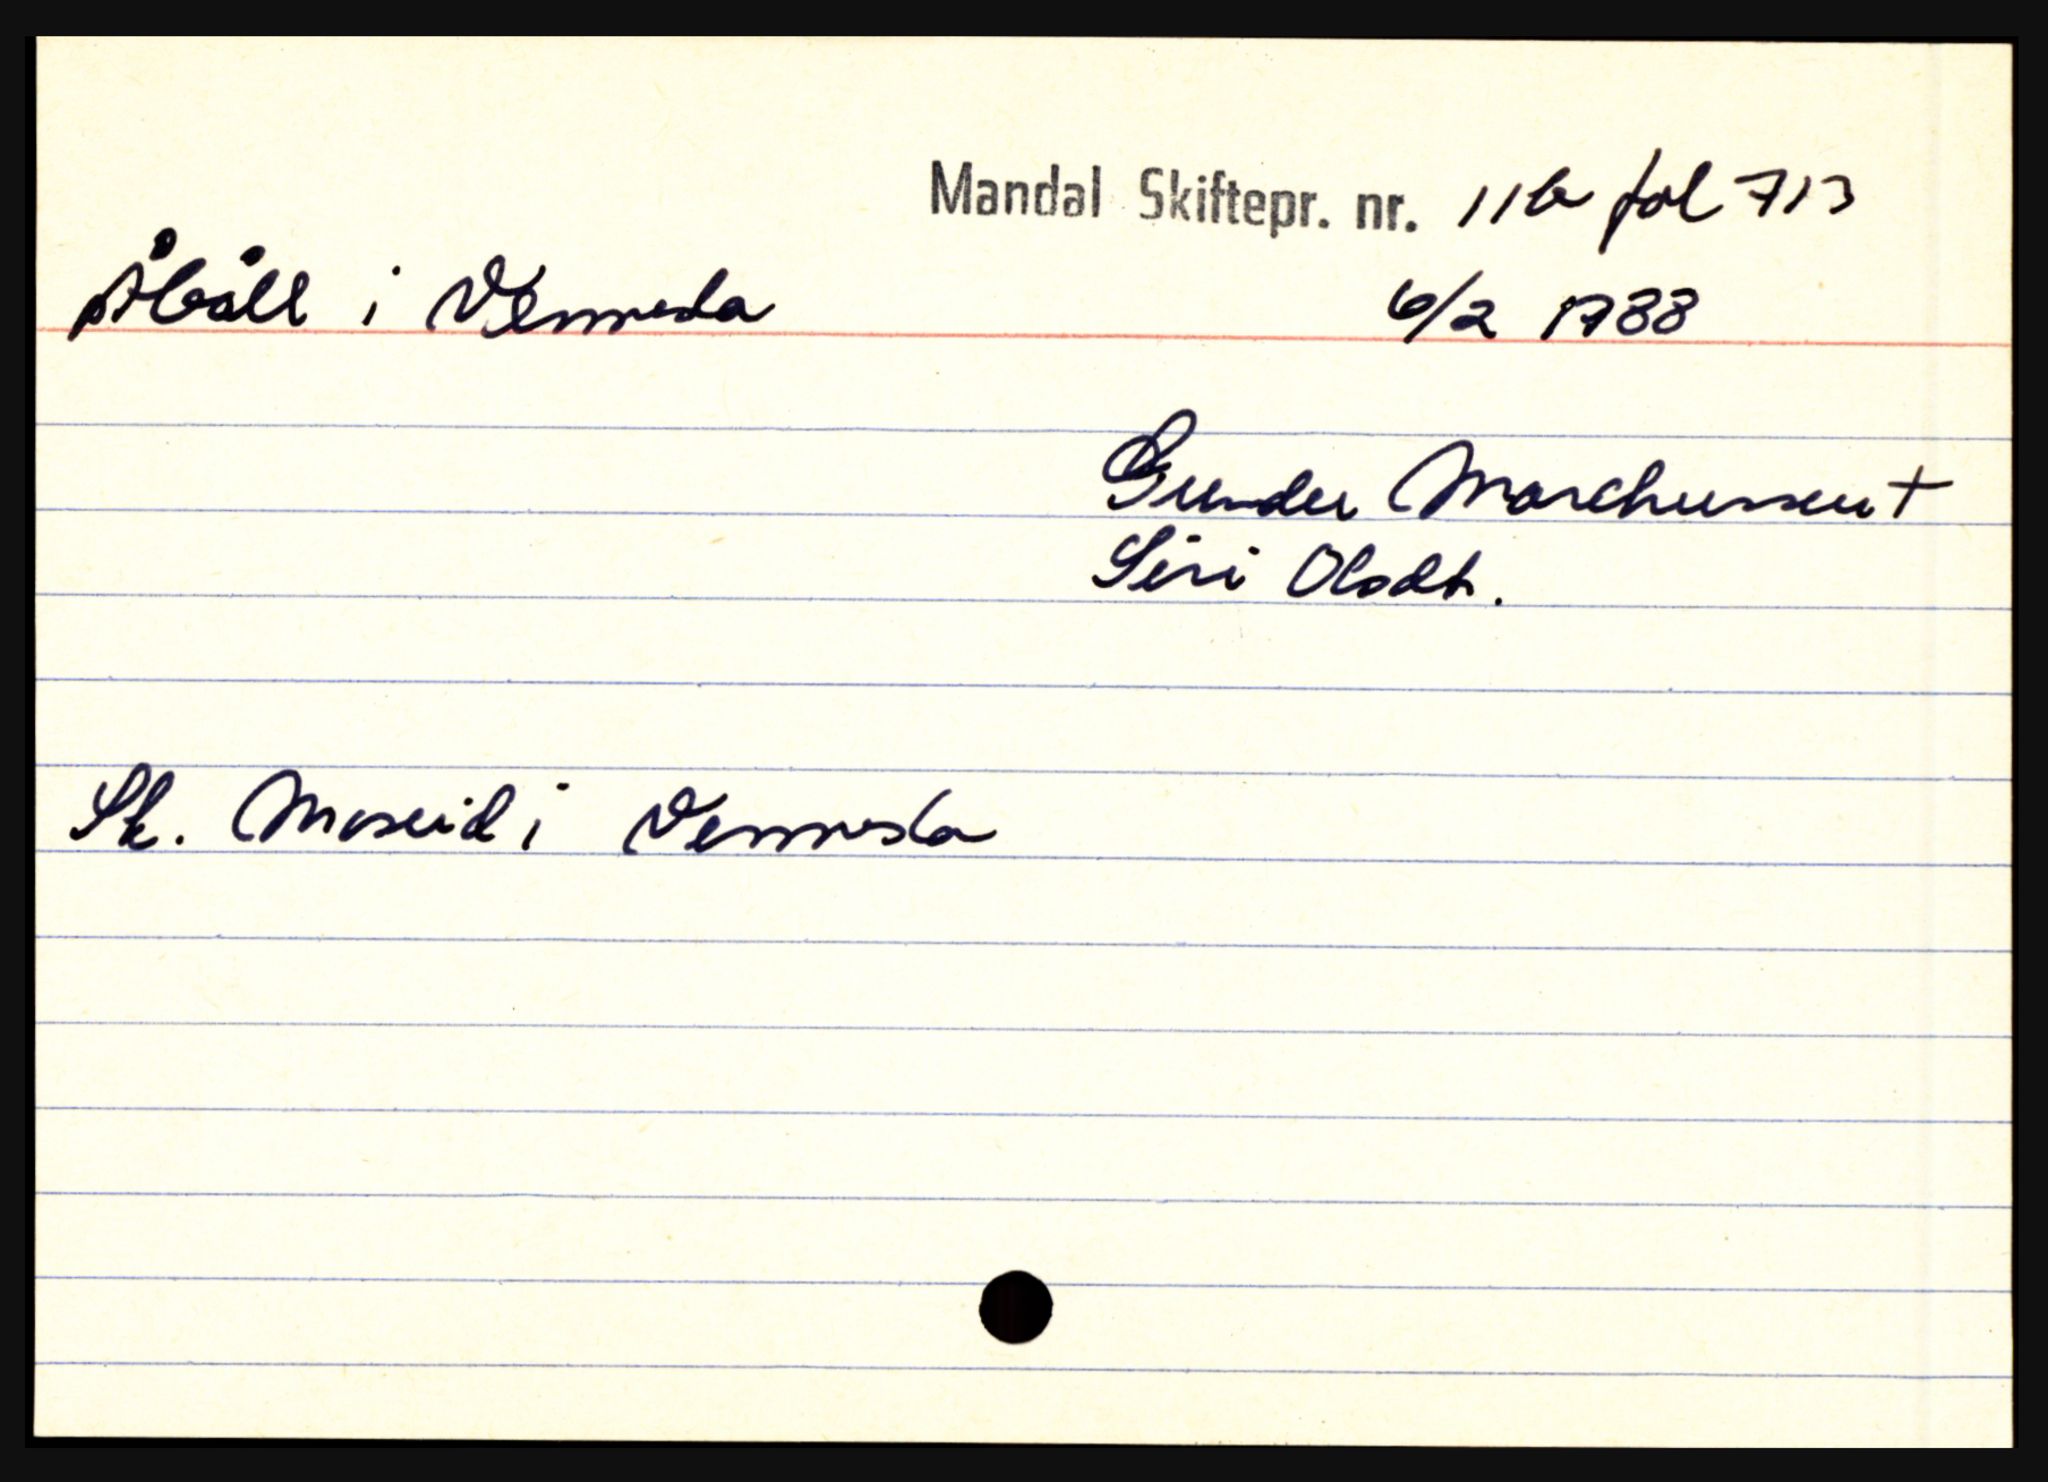 Mandal Skiftepr. nr. 11b fol 713
Åbåll i Vennesla 6/2 1788
Gunder Marchussen +
Siri Olsdt.
Sk. Moseid i Vennesla